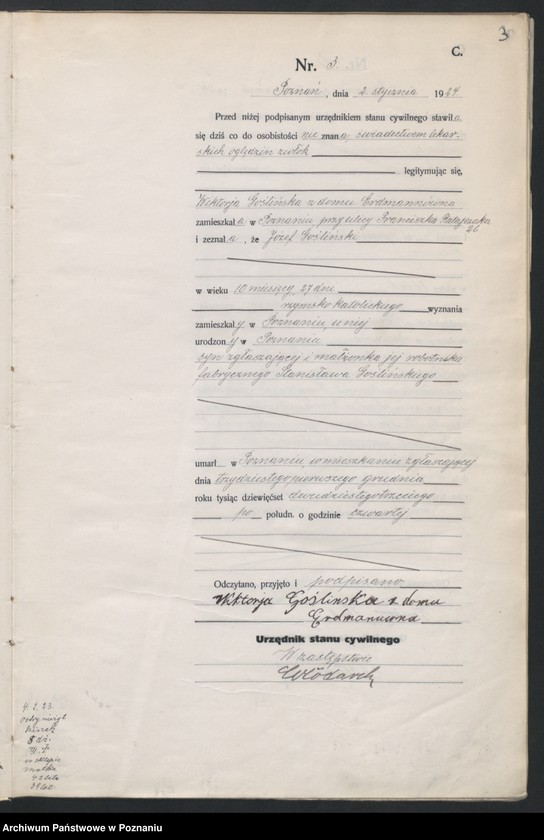 3
C.
Nr. 3.
Poznań, dnia 2. stycznia 1924
Przed niżej podpisanym urzędnikiem stanu cywilnego stawiła
się dziś co do osobistości nie znana, świadectwem lekar-
skich oględzin zwłok
legitymując się,
Wiktorja Goślińska z domu Erdmannówna
zamieszkała w Poznaniu przy ulicy Franciszka Ratajczaka
26
i zeznała, że Józef Gośliński
w wieku 10 miesięcy, 27 dni
rzymsko katolickiego wyznania
zamieszkały w Poznaniu, u niej
urodzony w Poznaniu
syn zgłaszającej i małżonka jej robotnika
fabrycznego Stanisława Goślińskiego
umarł w Poznaniu, w mieszkaniu zgłaszającej
dnia trzydziestego pierwszego grudnia
roku tysiąc dziewięćset dwudziestegotrzeciego
po połudn. o godzinie czwartej
Odczytano, przyjęto i podpisano
Wiktorja Goślinska z domu
Erdmanuwna
Urzędnik stanu cywilnego
W zastępstwie
Włodarek
4. 1. 23.
8 dz.
matka
Archiwum Państwowe w Poznaniu